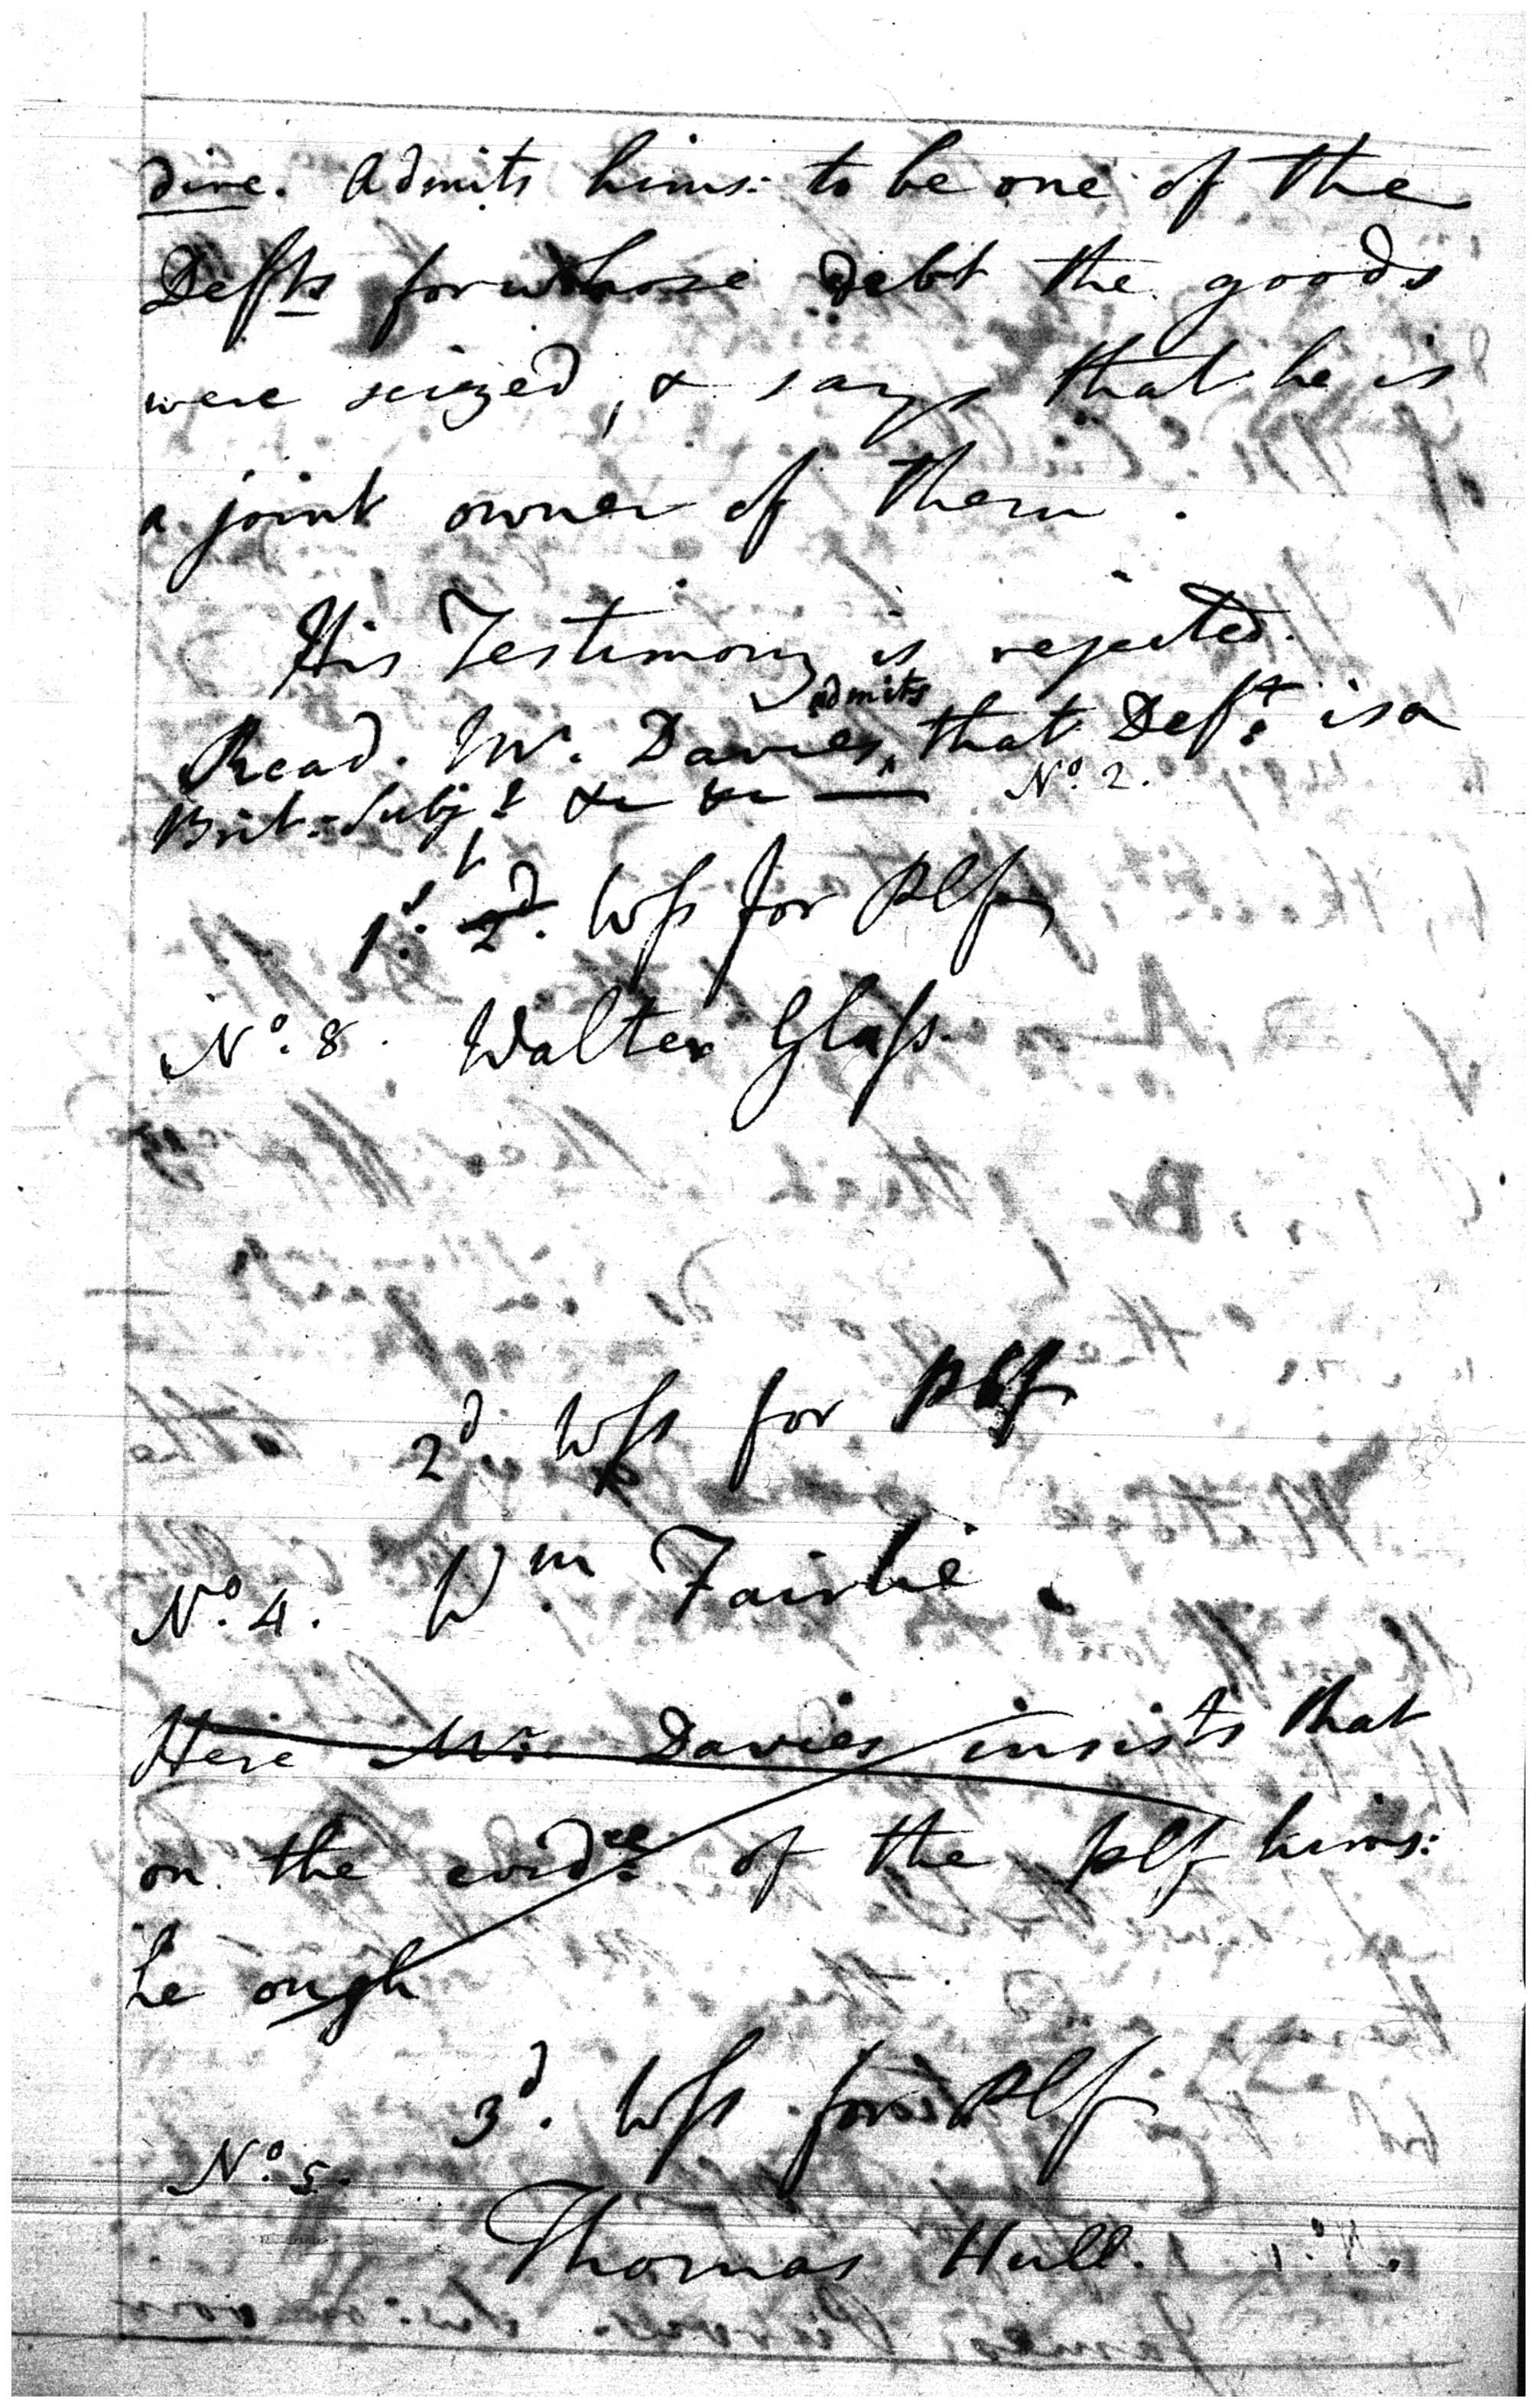 dire. Admits hims: to be one of the
Defts for whose debt the goods
were seized, & says that he is
a joint owner of them.
His Testimony is rejected.
Read. Mr. Davies admits that Deft. is a
Brit: Subjt. &c &c — No. 2.
1st. 2d. Wss for Plf
No. 8. Walter Glass.
2d. Wss for Plf
No. 4. Wm. Fairlie.
Here Mr. Davies insists that
on the evidce. of the plf hims:
he ough
3d. Wss for Plf
No. 5.
Thomas Hull.